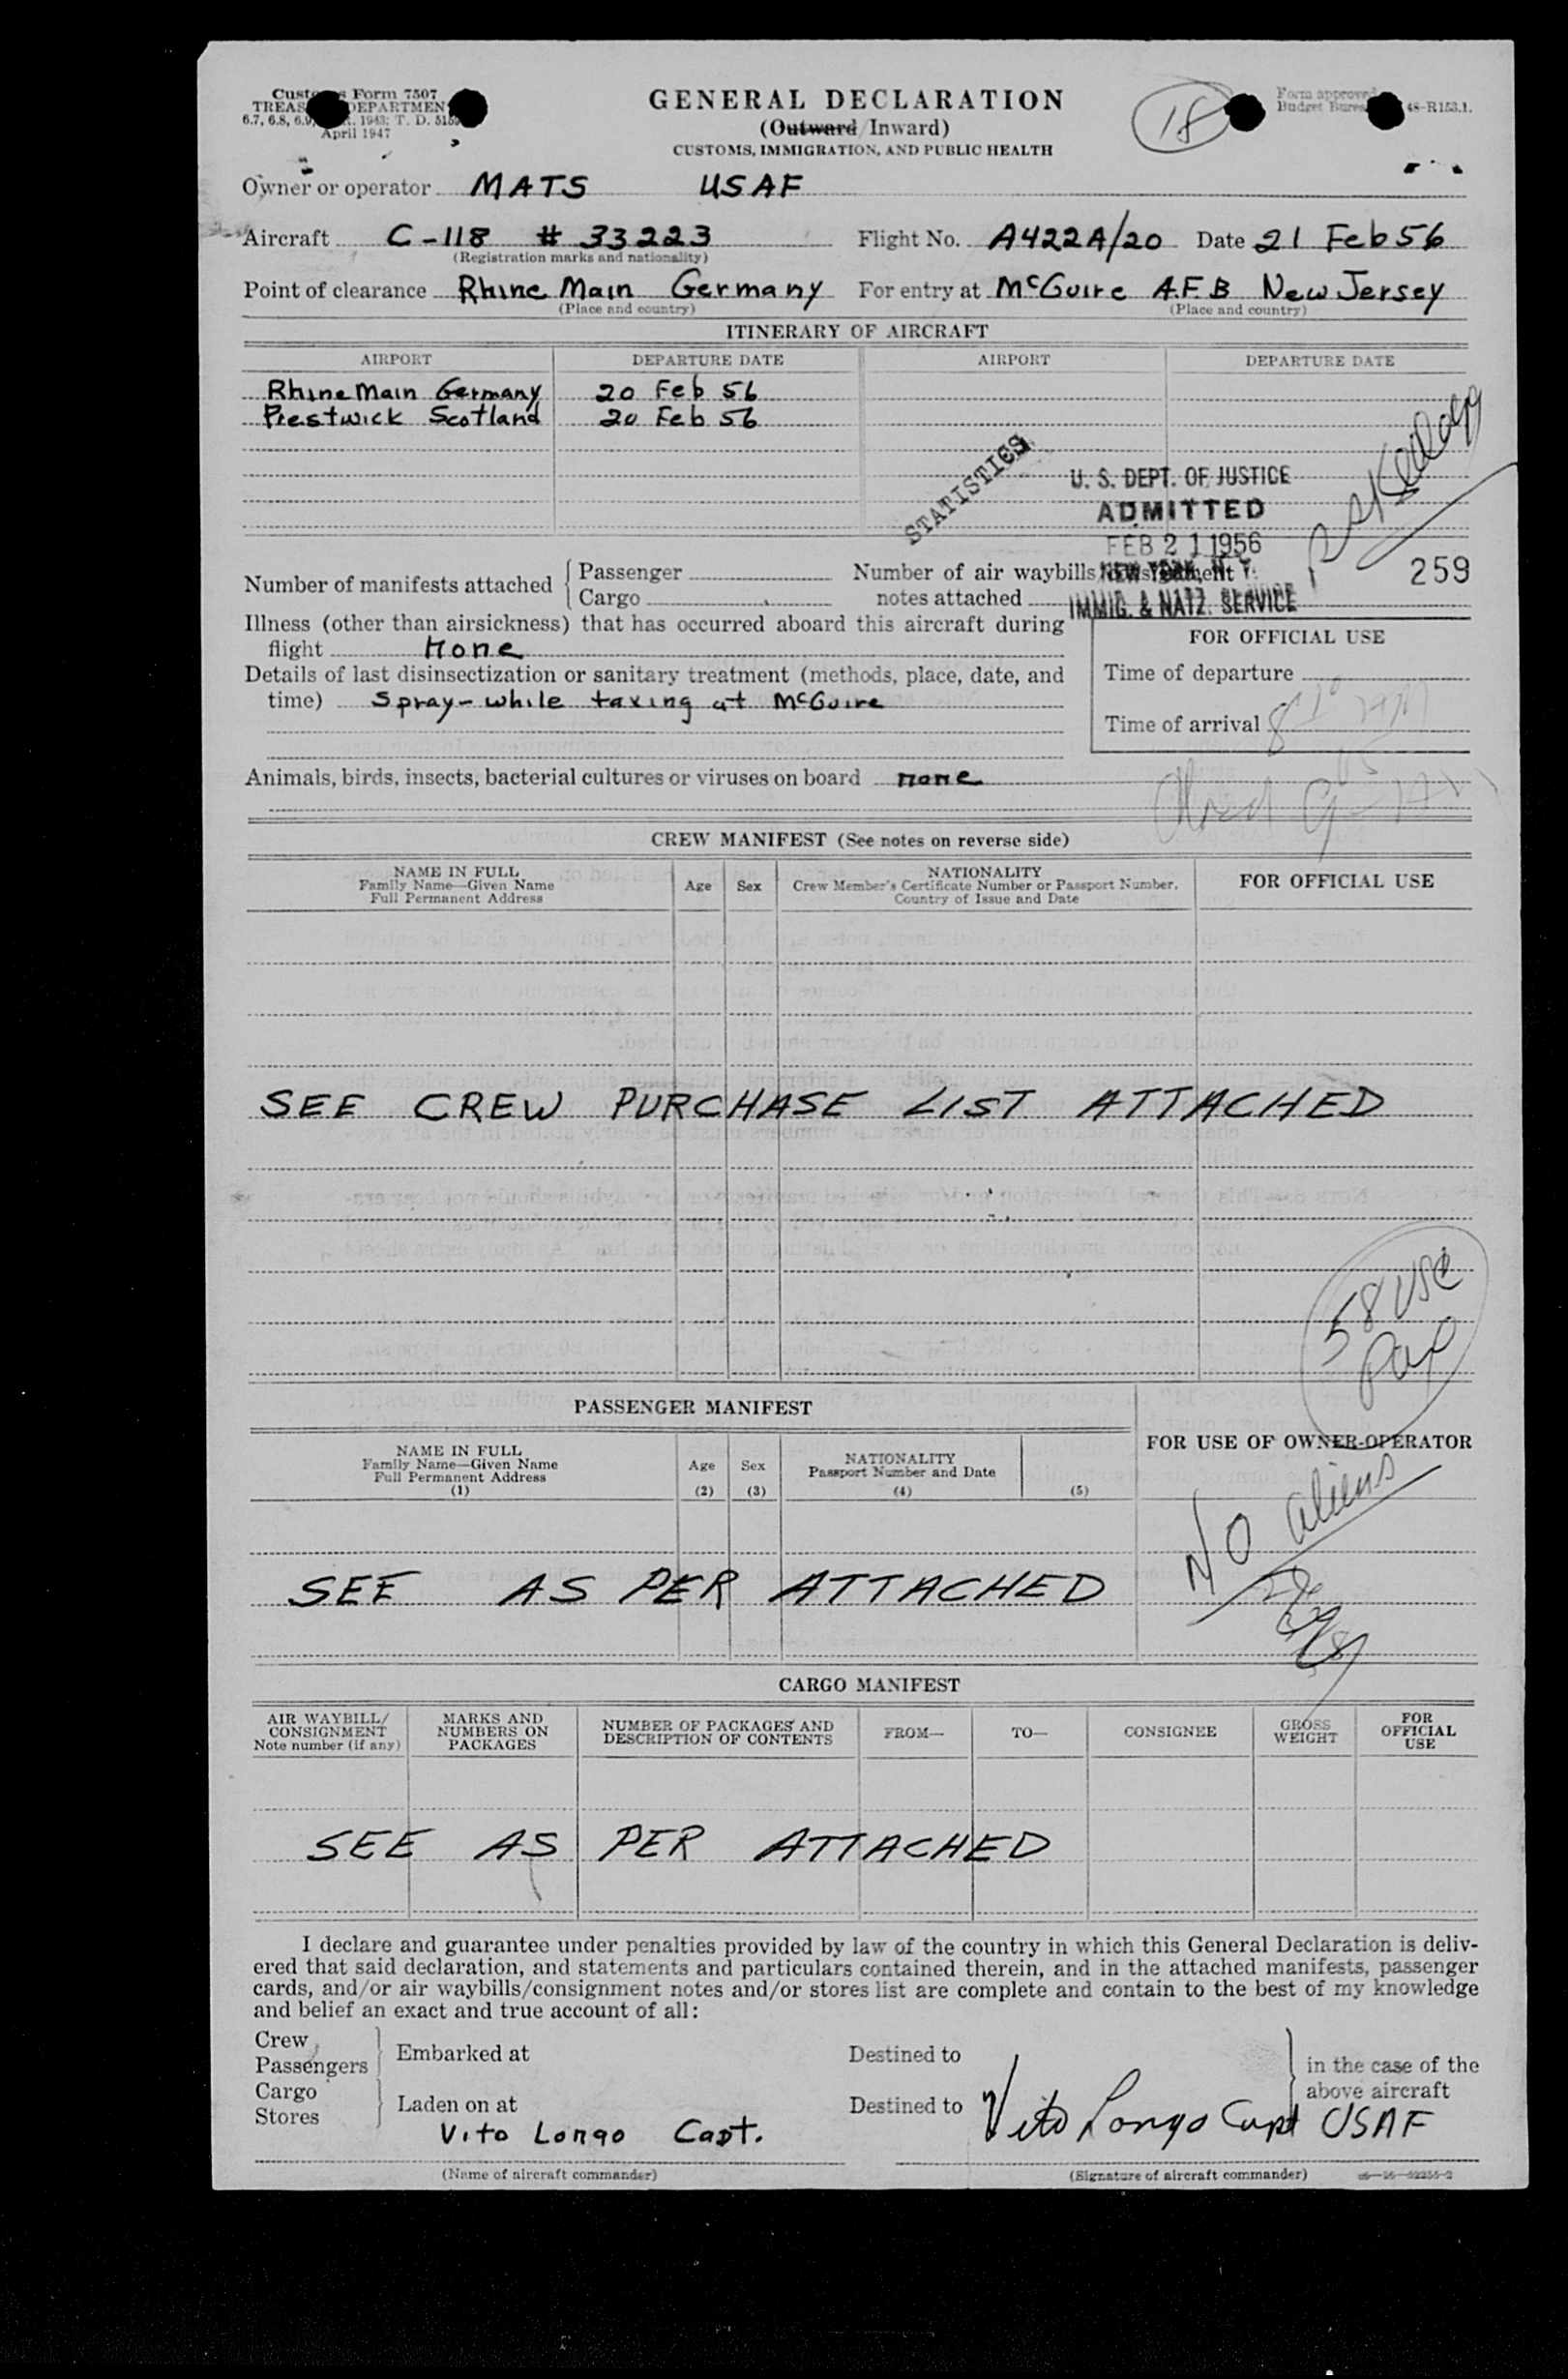 Customs Form 7507
TREASURY DEPARTMENT
April 1947
GENERAL DECLARATION
(Outward/Inward)
CUSTOMS, IMMIGRATION, AND PUBLIC HEALTH
18
Form approved
Budget Bureau 48-R153.1.
Owner or operator MATS USAF
Aircraft C-118 # 33223 Flight No. A422A/20 Date 21 Feb 56
(Registration marks and nationality)
Point of clearance Rhine Main Germany For entry at McGuire A.F.B New Jersey
(Place and country) (Place and country)
ITINERARY OF AIRCRAFT
AIRPORT DEPARTURE DATE AIRPORT DEPARTURE DATE
Rhine Main Germany 20 Feb 56
Prestwick Scotland 20 Feb 56
STATISTICS
U. S. DEPT. OF JUSTICE
ADMITTED
FEB 21 1956
NEW YORK, N. Y.
IMMIG. & NATZ. SERVICE
259
Number of manifests attached { Passenger
Cargo
Number of air waybills/consignment
notes attached
Illness (other than airsickness) that has occurred aboard this aircraft during
flight None
Details of last disinsectization or sanitary treatment (methods, place, date, and
time) Spray-while taxing at McGuire
FOR OFFICIAL USE
Time of departure
Time of arrival
Animals, birds, insects, bacterial cultures or viruses on board none
CREW MANIFEST (See notes on reverse side)
NAME IN FULL
Family Name—Given Name
Full Permanent Address
Age
Sex
NATIONALITY
Crew Member's Certificate Number or Passport Number,
Country of Issue and Date
FOR OFFICIAL USE
SEE CREW PURCHASE LIST ATTACHED
58 USC
Pax
PASSENGER MANIFEST
FOR USE OF OWNER-OPERATOR
NAME IN FULL
Family Name—Given Name
Full Permanent Address
(1)
Age
(2)
Sex
(3)
NATIONALITY
Passport Number and Date
(4)
(5)
No aliens
SEE AS PER ATTACHED
CARGO MANIFEST
AIR WAYBILL/
CONSIGNMENT
Note number (if any)
MARKS AND
NUMBERS ON
PACKAGES
NUMBER OF PACKAGES AND
DESCRIPTION OF CONTENTS
FROM—
TO—
CONSIGNEE
GROSS
WEIGHT
FOR
OFFICIAL
USE
SEE AS PER ATTACHED
I declare and guarantee under penalties provided by law of the country in which this General Declaration is deliv-
ered that said declaration, and statements and particulars contained therein, and in the attached manifests, passenger
cards, and/or air waybills/consignment notes and/or stores list are complete and contain to the best of my knowledge
and belief an exact and true account of all:
Crew
Passengers
Embarked at
Destined to
Cargo
Stores
Laden on at
Destined to
in the case of the
above aircraft
Vito Longo Capt.
Vito Longo Capt USAF
(Name of aircraft commander)
(Signature of aircraft commander)